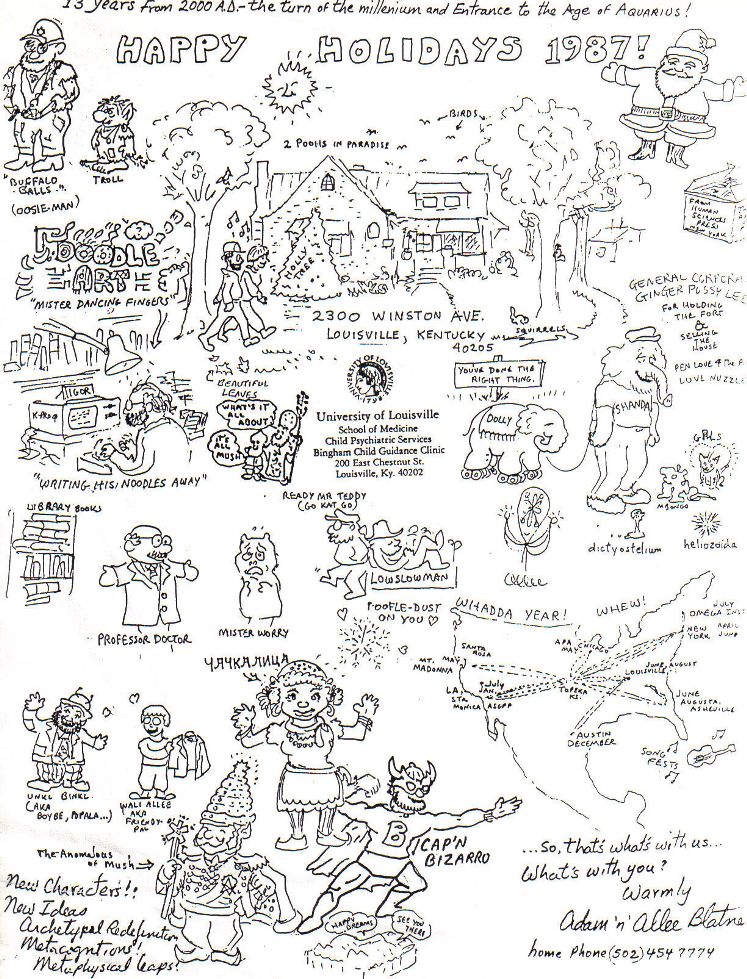 13 years from 2000 A.D.- the turn of the millenium and Entrance to the Age of AQUARIUS!
HAPPY HOLIDAYS 1987!
BIRDS
2 POOHS IN PARADISE
"BUFFALO
BALLS"
(OOSIE-MAN)
TROLL
FROM
HUMAN
SCIENCES
PRESS
NEW YORK
DOODLE
ART
"MISTER DANCING FINGERS"
HOLLY
TREE
2300 WINSTON AVE.
LOUISVILLE, KENTUCKY
40205
SQUIRRELS
GENERAL CORPORA
GINGER PUSSY LE
FOR HOLDING
THE FORT
&
SELLING
THE
HOUSE
PEN LOVE 4 THE
LUVE NUZZLE
IGOR
K-PRO 4
"WRITING HIS NOODLES AWAY"
BEAUTIFUL
LEAVES
WHAT'S IT
ALL
ABOUT?
IT'S
ALL
MUSH
UNIVERSITY OF LOUISVILLE
University of Louisville
School of Medicine
Child Psychiatric Services
Bingham Child Guidance Clinic
200 East Chestnut St.
Louisville, Ky. 40202
YOU'VE DONE THE
RIGHT THING.
DOLLY
SHANDA
GRLS
MBONGO
dictyostelium
heliozoida
LIBRARY BOOKS
PROFESSOR DOCTOR
MISTER WORRY
READY MR TEDDY
(GO KAT GO)
LOWSLOWMAN
Allee
POOFLE-DUST
ON YOU
WHADDA YEAR!
WHEW!
JULY
OMEGA INST
NEW APRIL
YORK JUNE
APA
MAY CHICAGO
SANTA
ROSA
MT. MAY
MADONNA
JUNE, AUGUST
LOUISVILLE
July
LA, JAN
STA.
MONICA ASGPP
TOPEKA
KS.
JUNE
AUGUSTA,
ASHEVILLE
AUSTIN
DECEMBER
SONG
FESTS
ЧАЧКАЛИЦА
UNKL BINKL
(AKA
BOYBE, POPALA...)
WALI ALLEE
AKA
FRIENDY-
PAL
The Anomalous
of Mush
B
CAP'N
BIZARRO
HAPPY
DREAMS
SEE YOU
THERE
New Characters!!
New Ideas
Archetypal Redefinition
Metacigntions!
Metaphysical leaps!
...so, that's what's with us...
What's with you?
Warmly
Adam 'n' Allee Blatne
home Phone (502) 454 7774